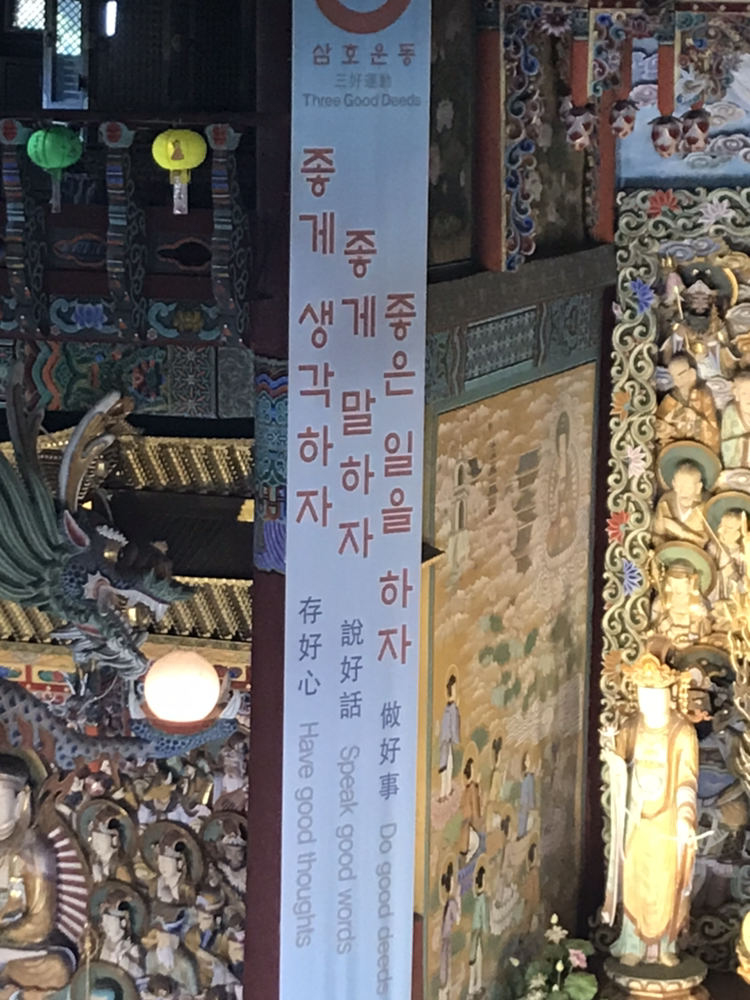 삼호운동
三好運動
Three Good Deeds
좋게 생각하자
存好心 Have good thoughts
좋게 말하자
說好話 Speak good words
좋은 일을 하자
做好事 Do good deeds